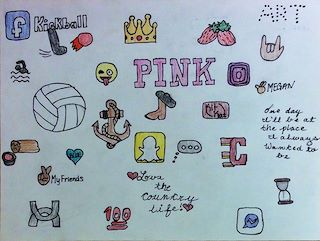 ART
f Kickball
PINK
MEGAN
One day
I'll be at
the place
I always
wanted to
be
EC
My Friends
Love
the
Country
life!
100